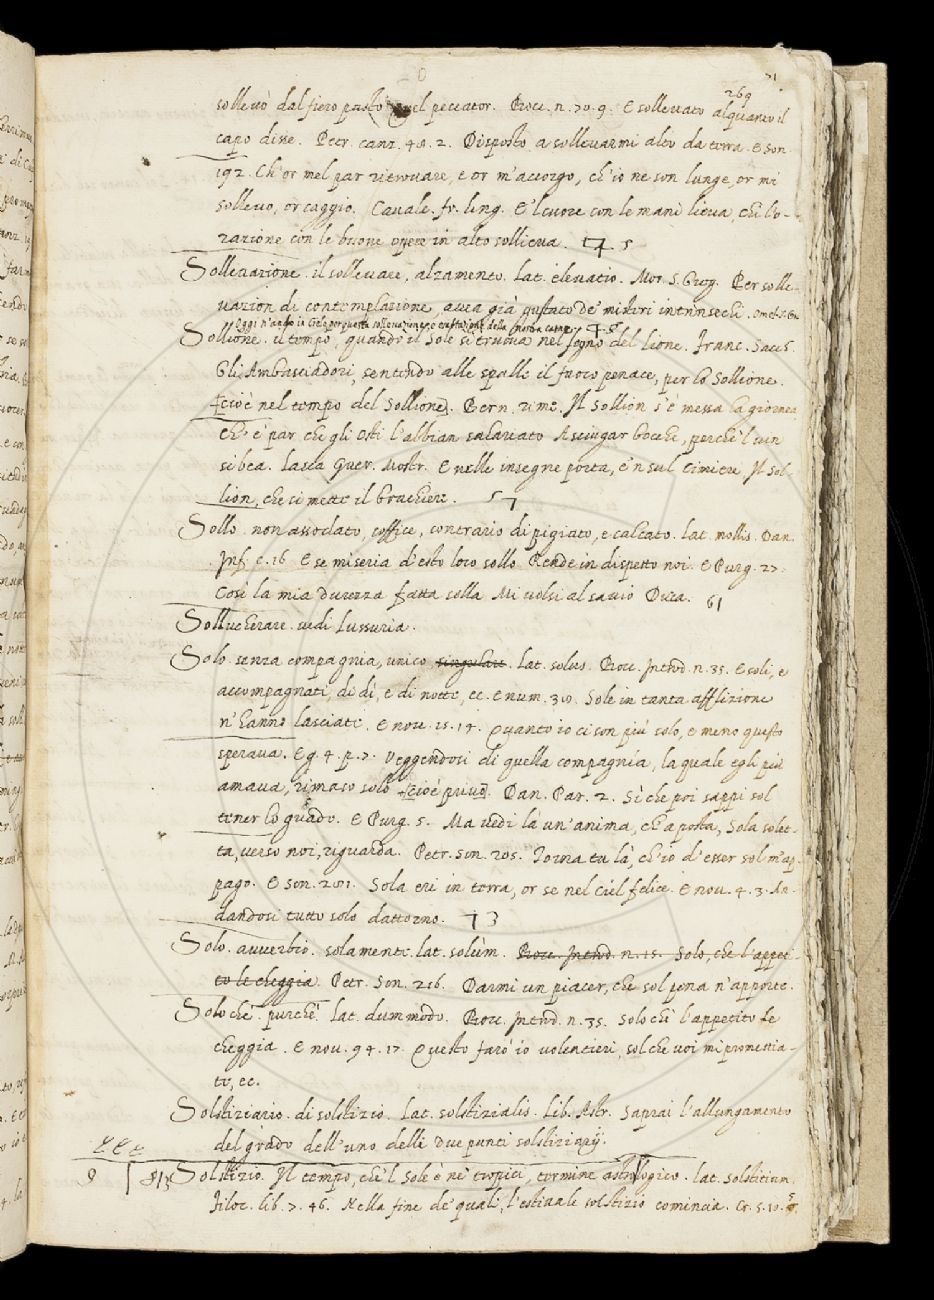 269
solleuò dal fiero pasto quel peccator. Bocc. n. 70. 9. E solleuato alquanto il
capo disse. Petr. canz. 48. 2. Disposto a solleuarmi alto da terra. E son.
192. Ch'or mel par ritrouare, e or m'accorgo, ch'io ne son lunge, or mi
solleuo, or caggio. Caualc. fr. ling. E'l cuore con le mani lieua, chi l'o-
razione con le buone opere in alto sollieua. 5
Solleuazione. il solleuare, alzamento. Lat. eleuatio. Mor. S. Greg. Per solle-
uazion di contemplazione auea già gustato de' misteri intrinsechi. Omel. S. Gr.
Oggi n'andò in Cielo per questa solleuazione, e esaltazione della nostra carne
Sollione. il tempo, quando il Sole si truoua nel segno del lione. Franc. Sacc.
Gli Ambasciadori, sentendo alle spalle il fuoco penace, per lo Sollione.
cioè nel tempo del Sollione. Bern. rime. Il Sollion s'è messa la giornea
Ch' e' par che gli osti l'abbian salariato A sciugar bocche, perchè 'l vin
si bea. Lasca Guer. Mostr. E nelle insegne porta, e 'n sul cimiere Il Sol-
lion, che si mette il brachiere. 57
Sollo. non assodato, soffice, contrario di pigiato, e calcato. lat. mollis. Dan.
Inf. c. 16. E se miseria d'esto loco sollo Rende in dispetto noi. E Purg. 27.
Così la mia durezza fatta solla Mi volsi al sauio Duca. 61
Sollucherare. vedi Lussuria.
Solo. senza compagnia, unico singulare. Lat. solus. Bocc. Introd. n. 35. E soli, e
accompagnati, di dì, e di notte, ec. E num. 30. Sole in tanta afflizione
n'hanno lasciate. E nou. 15. 14. Quanto io ci son più solo, e meno questo
speraua. E g. 4. p. 7. Veggendosi di quella compagnia, la quale egli più
amaua, rimaso solo cioè priuo. Dan. Par. 2. Sì che poi sappi sol
tener lo guado. E Purg. 5. Ma vedi là un'anima, ch'a posta, Sola solet-
ta, verso noi, riguarda. Petr. son. 205. Torna tu là, ch'io d'esser sol m'ap-
pago. E son. 201. Sola eri in terra, or se nel ciel felice. E nou. 4. 3. An-
dandosi tutto solo dattorno. 3
Solo. auuerbio. solamente. lat. solùm. Bocc. Introd. n. 15. Solo, che l'appeti
to le cheggia. Petr. Son. 216. Darmi un piacer, che sol pena n'apporte.
Solo chè. purchè. Lat. dummodo. Bocc. Introd. n. 35. Solo chè l'appetito le
cheggia. E nou. 94. 17. Questo farò io volentieri, sol che voi mi promettia-
te, ec.
Solstiziario. di solstizio. Lat. solstizialis. Lib. Astr. Saprai l'allungamento
del grado dell'uno delli due punti solstiziarij.
Solstizio. Il tempo, che 'l Sole è ne' tropici, termine astrologico. lat. solstitium.
Filoc. lib. 7. 46. Nella fine de' quali, l'estiuale solstizio comincia. Cr. 5. 10.